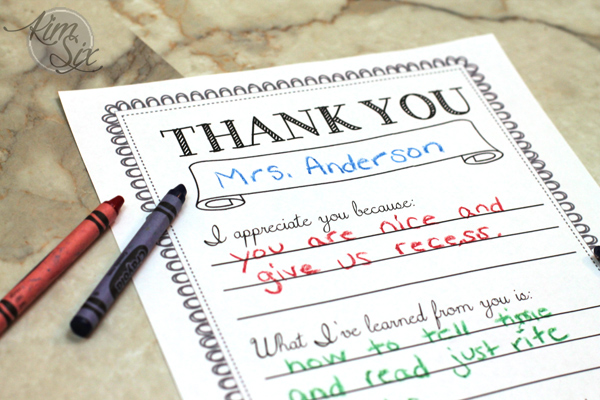 Kim Six
THANK YOU
Mrs. Anderson
I appreciate you because:
you are nice and
give us recess.
What I've learned from you is:
how to tell time
and read just rite